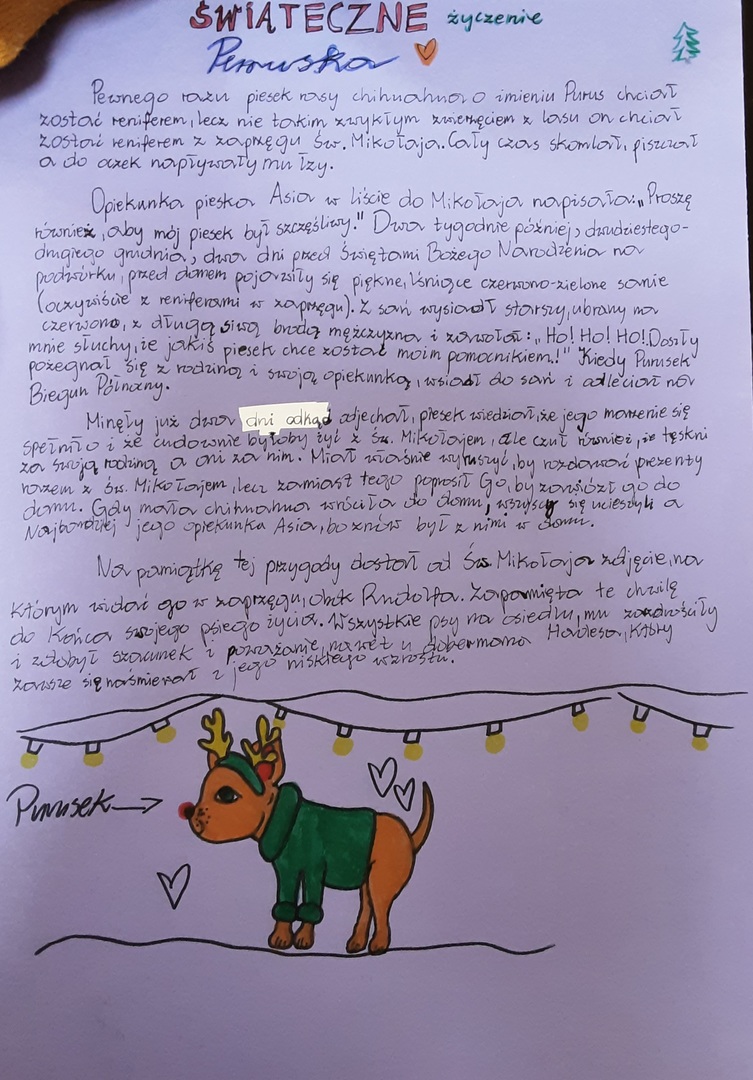 ŚWIĄTECZNE życzenie
Purruska
Pewnego razu piesek rasy chihuahua o imieniu Purus chciał
zostać reniferem, lecz nie takim zwykłym zwierzęciem z lasu on chciał
zostać reniferem z zaprzęgu Św. Mikołaja. Cały czas skomlał, piszczał
a do oczek napływały mu łzy.
Opiekunka pieska Asia w liście do Mikołaja napisała: „Proszę
również, aby mój piesek był szczęśliwy." Dwa tygodnie później, dwudziestego-
drugiego grudnia, dwa dni przed Świętami Bożego Narodzenia na
podwórku, przed domem pojawiły się piękne, lśniące czerwono-zielone sanie
(oczywiście z reniferami w zaprzęgu). Z sań wysiadł starszy, ubrany na
czerwono, z długą siwą brodą mężczyzna i zawołał: „Ho! Ho! Ho! Doszły
mnie słuchy, że jakiś piesek chce zostać moim pomocnikiem!" Kiedy Purusek
pożegnał się z rodziną i swoją opiekunką, wsiadł do sań i odleciał na
Biegun Północny.
Minęły już dwa dni odkąd odjechał, piesek wiedział, że jego marzenie się
spełniło i że cudownie byłoby żyć z Św. Mikołajem, ale czuł również, że tęskni
za swoją rodziną a oni za nim. Miał właśnie wyruszyć, by rozdawać prezenty
razem z Św. Mikołajem, lecz zamiast tego poprosił Go, by zawiózł go do
domu. Gdy mała chihuahua wróciła do domu, wszyscy się ucieszyli a
Najbardziej jego opiekunka Asia, bo znów był z nimi w domu.
Na pamiątkę tej przygody dostał od Św Mikołaja zdjęcie, na
którym widać go w zaprzęgu, obok Rudolfa. Zapamięta te chwilę
do końca swojego psiego życia. Wszystkie psy na osiedlu, mu zazdrościły
i zdobył szacunek i poważanie, nawet u dobermana Hadesa, który
zawsze się naśmiewał z jego niskiego wzrostu.
Purusek